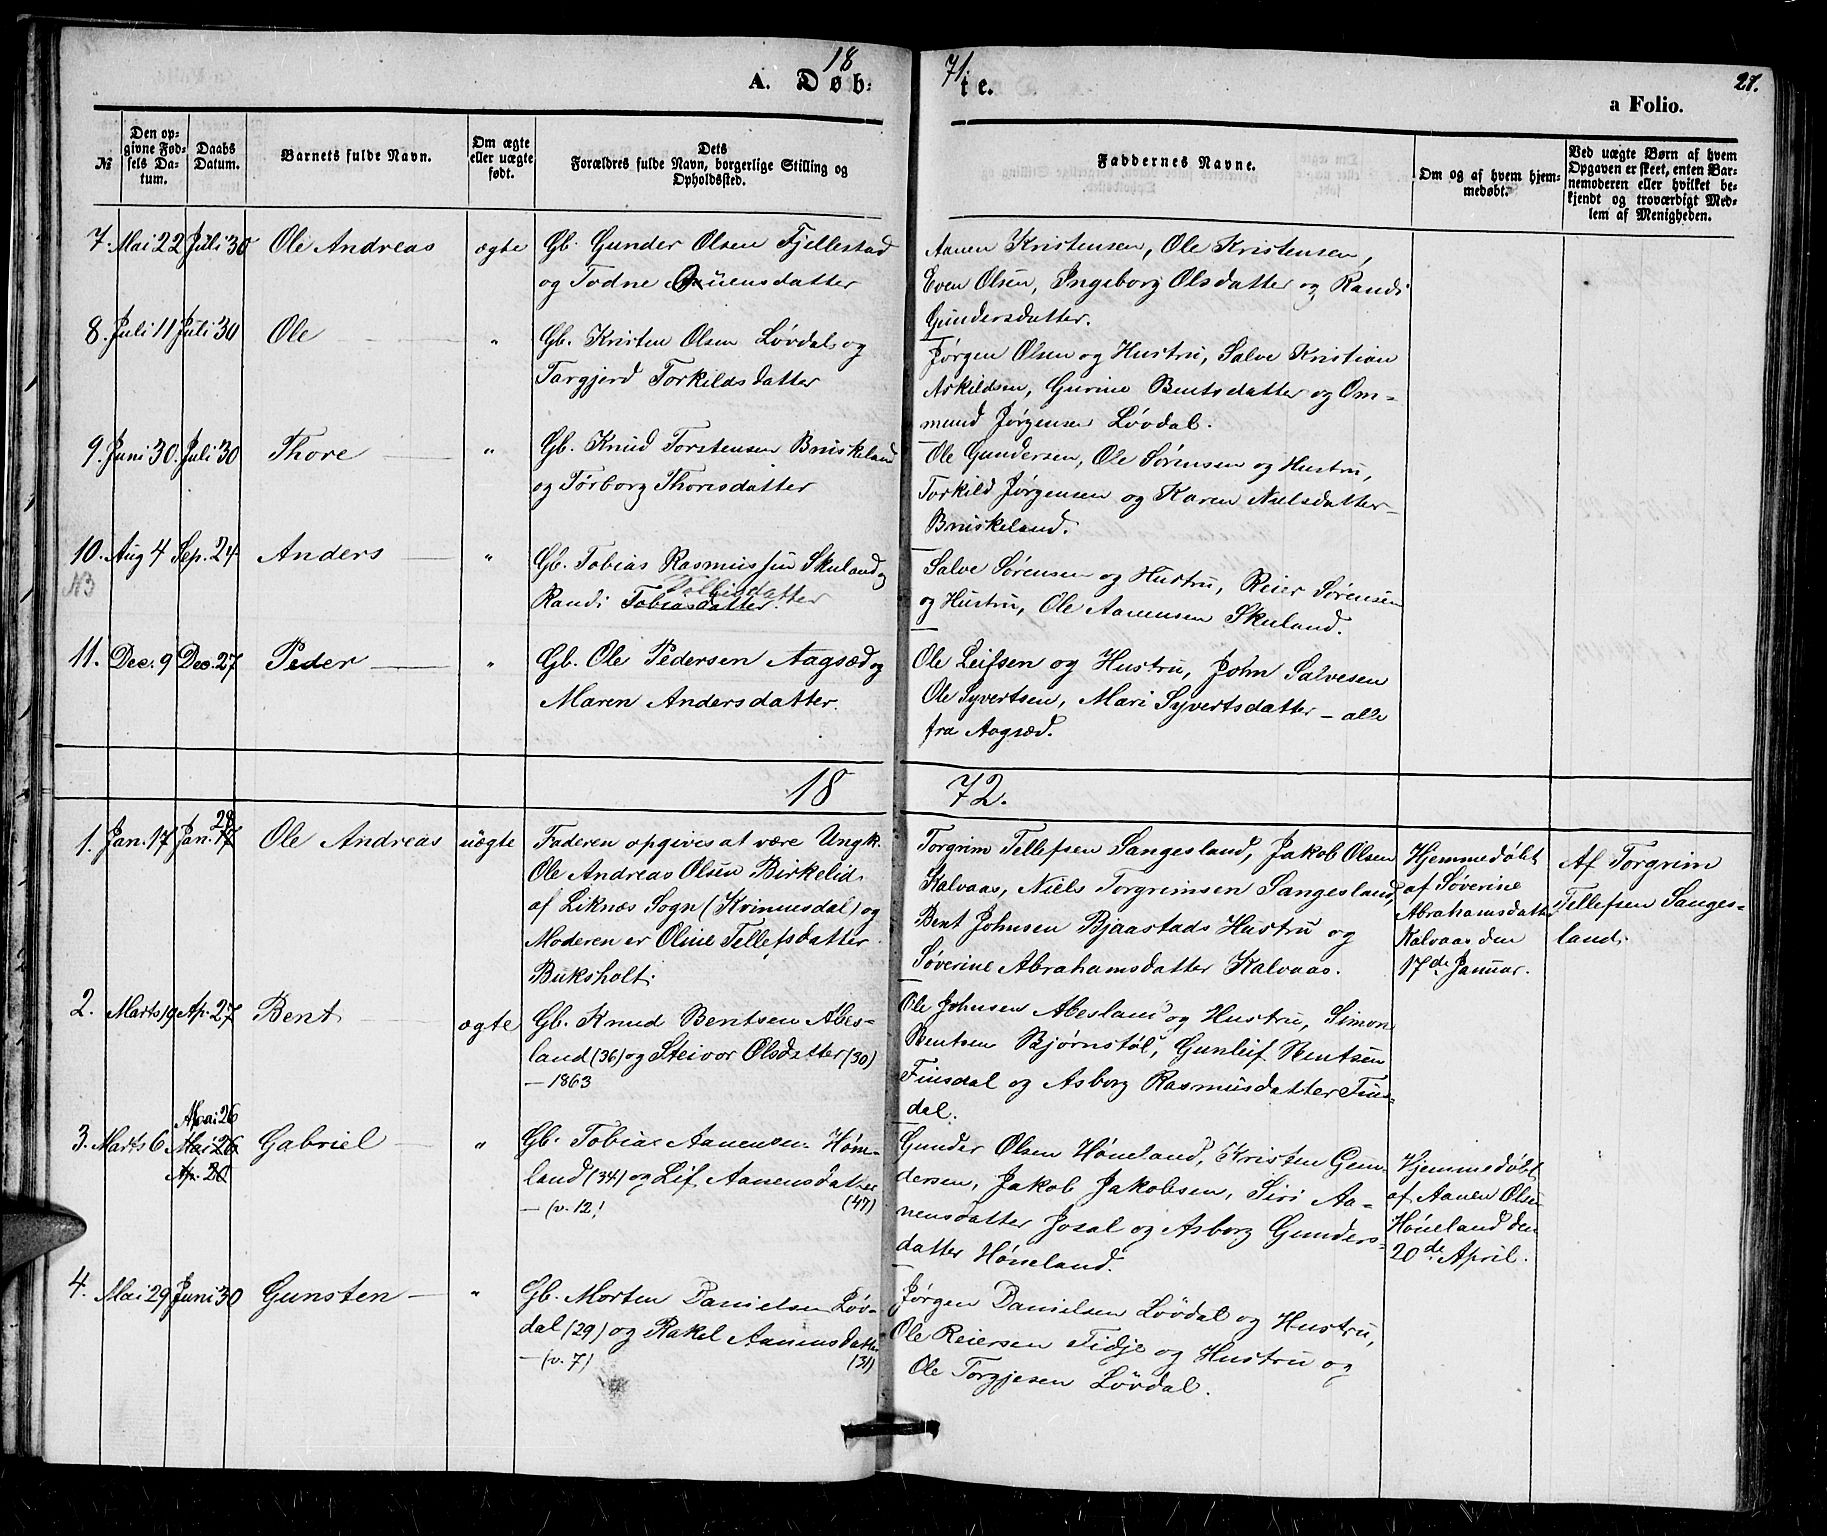 18 71
A. Døb: te.
27.
a Folio.
№
Den op-
givne Fød-
sels Da-
tum.
Daabs
Datum.
Barnets fulde Navn.
Om ægte
eller uægte
født.
Dets
Forældres fulde Navn, borgerlige Stilling og
Opholdssted.
Faddernes Navne.
Om og af hvem hjem-
medøbt.
Ved uægte Børn af hvem
Opgaven er skeet, enten Bar-
nemoderen eller hvilket be-
kjendt og troværdigt Med-
lem af Menigheden.
7. Mai 22 Juli 30 Ole Andreas ægte Gb. Gunder Olsen Fjellestad
og Todne Ouensdatter
Aanen Kristensen, Ole Kristensen,
Even Olsen, Ingeborg Olsdatter og Randi
Gundersdatter.
8. Juli 11 Juli 30 Ole " Gb. Kristen Olsen Løvdal og
Targjerd Torkildsdatter
Jørgen Olsen og Hustru, Salve Kristian
Askildsen, Gurine Bentsdatter og Om-
mund Jørgensen Løvdal.
9. Juni 30. Juli 30 Thore " Gb. Knud Torstensen Bruskeland
og Torborg Thorisdatter
Ole Gundersen, Ole Sørensen og Hustru,
Torkild Jørgensen og Karen Nielsdatter
Bruskeland.
10. Aug 4 Sep. 24 Anders " Gb. Tobias Rasmussen Skuland og
N3
Tollfisdatter
Randi Tobiasdatter.
Salve Sørensen og Hustru, Reier Sørensen
og Hustru, Ole Aanensen Skuland.
11. Dec. 9 Dec. 27 Peder " Gb. Ole Pedersen Aagsæd og
Maren Andersdatter.
Ole Leifsen og Hustru, John Salvesen
Ole Syvertsen, Mari Syvertsdatter - alle
fra Aagsæd.
18 72.
1. Jan. 17 Jan. 17 28 Ole Andreas uægte Faderen opgives at være Ungk.
Ole Andreas Olsen Birkelid
af Liknæs Sogn (Kvinnesdal) og
Moderen er Oline Tellefsdatter
Buksholt.
Torgrim Tellefsen Sangesland, Jakob Olsen
Kalvaas, Niels Torgrimsen Sangesland,
Bent Johnsen Bjaastads Hustru og
Søverine Abrahamsdatter Kalvaas.
Hjemmedøbt
af Søverine
Abrahamsdatter
Kalvaas den
17de Januar.
Af Torgrim
Tellefsen Sanges-
land.
2. Marts 19 Ap. 27 Bent ægte Gb. Knud Bentsen Abes-
land (36) og Steivor Olsdatter (30)
- 1863
Ole Johnsen Abesland og Hustru, Simon
Bentsen Bjørnstøl, Gunleif Bentsen
Finsdal og Asborg Rasmusdatter Fins-
dal.
3. Marts 6 Mai 26 Gabriel " Gb. Tobias Aanensen Høne-
Ap. 20
land (34) og Lif Aanensdatter
- (v. 12) (47)
Gunder Olsen Høneland, Kristen Gun-
dersen, Jakob Jakobsen, Siri Aa-
nensdatter Josal og Asborg Gunders-
datter Høneland.
Hjemmedøbt
af Aanen Olsen
Høneland den
20de April.
4. Mai 29 Juni 30 Gunsten " Gb. Morten Danielsen Løv-
dal (29) og Rakel Aanensdatter
- (v. 7) (31)
Jørgen Danielsen Løvdal og Hustru,
Ole Reiersen Tidje og Hustru og
Ole Torgjesen Løvdal.